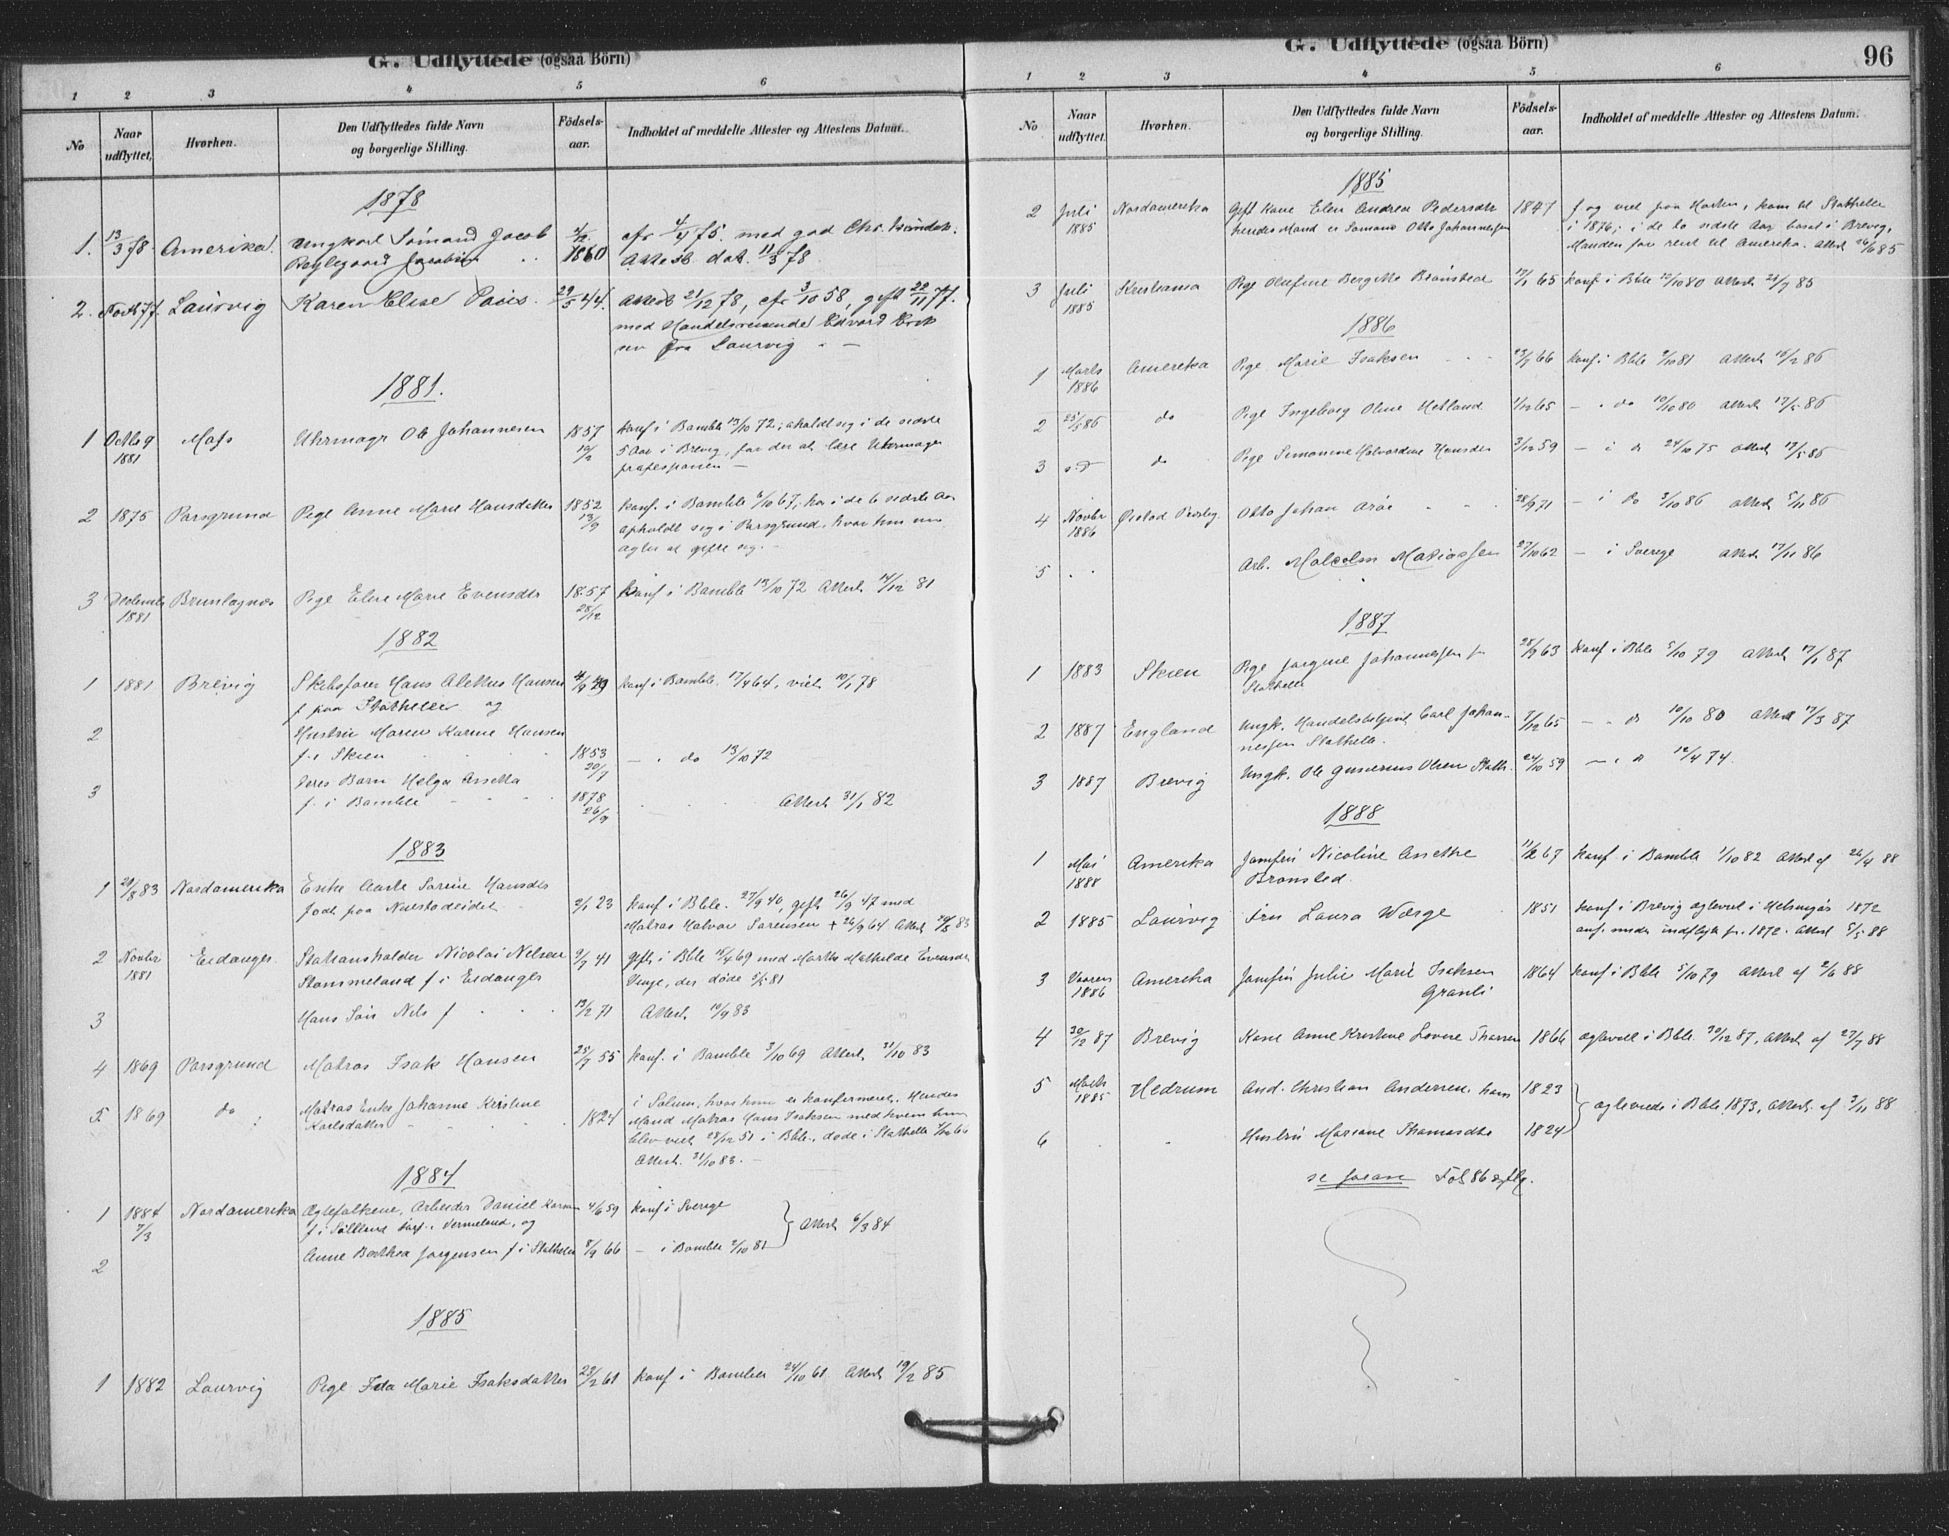 G. Udflyttede (ogsaa Börn)
1 2 3 4 5 6
No
Naar udflyttet.
Hvorhen.
Den Udflyttedes fulde Navn og borgerlige Stilling.
Födsels-aar.
Indholdet af meddelte Attester og Attestens Datum.
1878
1. 13/3 78 Amerika. Ungkarl Sömand Jacob 1860
Attest dat. 11/3 78.
2. Laurvig Karen Elise 29/5 44. Attest 21/12 78, cfr 3/10 58, gift 22/11 77.
med Handelsreisende Edvard
sen fra Laurvig
1881.
1 1881 Uhrmagr Ole Johannesen 1857 konf i Bamble 13/10 72; opholdt sig i de sidste
5 Aar i Brevig, for der at lære Uhrmager
professionen
2 1875 Porsgrund Pige Anne Marie Hansdatter 1852 konf. i Bamble 6/10 67, har i de 6 sidste Aar
opholdt sig i Porsgrund, hvor hun nu
agter at gifte sig.
3 Decemb 1881 Brunlagnæs Pige Elen Marie Evensdtr 1857 28/12 konf i Bamble 13/10 72 Attest 14/12 81
1882
1 1881 Brevig Skibsfører Hans Alettus Hansen 49 konf i Bamble 17/4 64, viet 10/1 78
f paa Stathelle og
2 Hustru Maren Karine Hansen
f. i Skien 1853 20/7 do 13/10 72
3 deres Barn Helga Anetta
f. i Bamble 1878 Attest 31/1 82
1883
1 83 Nordamerika Enke Sorine Hansdtr
født paa 2/1 23 konf i Bble. 27/9 40, gift 26/9 47 med
Matros Halvor Sørensen + 64 Attest 83
2 Novbr 1881 Eidanger Stationsholder Nicolai Nelsen 41 gift i Bble 69 med Marthe Mathilde Evensdtr
Stammeland f i Eidanger der døde 81
3 Hans Søn Nils f 13/2 71 Attest 83
4 1869 Porsgrund Matros Isak Hansen 25/7 55 konf. i Bamble 3/10 69 Attest 31/10 83
5 1869 do Matros Enke Johanne Kristine
Karlsdatter 1824 i Solum, hvor hun er konfirmeret. Hendes
Mand Matros Hans Isaksen med hvem hun
blev viet 28/12 51 i Bble., døde i Stathelle 66
Attest. 31/10 83.
1884
1 1884 7/3 Nordamerika Ægtefolkene, Arbeider Daniel 4/6 59 konf i Sverige
og Attest 6/3 84
2 Anne Berthea Jørgensen f i Stathelle 66 i Bamble 2/10 81
1885
1 1882 Laurvig Pige Ida Marie Isaksdatter 23/2 61 konf i Bamble Attest 19/2 85
G. Udflyttede (ogsaa Börn)
96
1 2 3 4 5 6
No
Naar udflyttet.
Hvorhen.
Den Udflyttedes fulde Navn og borgerlige Stilling.
Födsels-aar.
Indholdet af meddelte Attester og Attestens Datum.
1885
2 Juli 1885 Nordamerika Gift Kone Elen Andrea Pedersdtr 1847 f og viet paa Horten, kom til Stathelle
hendes Mand er Sømand Otto Johannessen i 1876; i de to sidste Aar boet i Brevig,
Manden før reist til Amerika. Attest 85
3 Juli 1885 Kristiania Pige Olufine Bergitte Brønsted 65 konf i Bble 10/10 80 Attest 85
1886
1 Marts 1886 Amerika Pige Marie Isaksen 66 konf i Bble 9/10 81 Attest 15/2 86
2 25/5 86 do Pige Ingeborg Oline Hetland 65 do 10/10 80 Attest 17/5 86
3 do Pige Simonine Halvordine Hansdtr 3/12 59 i do 24/10 75 Attest 86
4 Novbr 1886 Otto Johan 71 i do 3/10 86 Attest 5/11 86
5 Arb. Malcolm Matiassen 27/10 62 i Sverige Attest 17/11 86
1887
1 1883 Skien Pige Jørgine Johannessen fr
Stathelle 63 konf i Bble 5/10 79 Attest 17/1 87
2 1887 England Ungk. Handelsbetjent Carl Johan-
nessen Stathelle. 65 do 10/10 80 Attest 17/3 87
3 1887 Brevig Ungk. Ole Gunerius Olsen Stath. 24/10 59 do 12/4 74.
1888
1 Mai 1888 Amerika Jomfru Nicoline Anethe
Brønsted. 67 konf i Bamble 1/10 82 Attest af 26/4 88
2 1885 Laurvig Fru Laura Wærge 1851 konf i Brevig ægteviet i Helsingør 1872
anf. under indflytt. fr. 1872. Attest 5/5 88
3 Vaaren 1886 Amerika Jomfru Julie Marie Isaksen
Granli 1864 konf i Bble 5/10 79 Attest af 2/6 88
4 30/12 87 Brevig Kone Anne Kristine Lovise 1866 ægteviet i Bble. 30/12 87, Attest af 27/7 88
5 1885 Hedrum And. Christian Andersen, hans 1823
ægteviede i Bble 1873, Attest. af 3/11 88
6 Hustru Mariane Thomasdtr 1824
se foran Fol 86 flg.